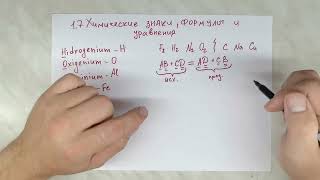 1.7 Химические знаки, формулы и
уравнения
Hidrogenium - H
Oxigenium - O
- Al
- Fe
F₂ H₂ N₂ O₂ C Na Cu
AB + CD = AD + CB
исх. прод.